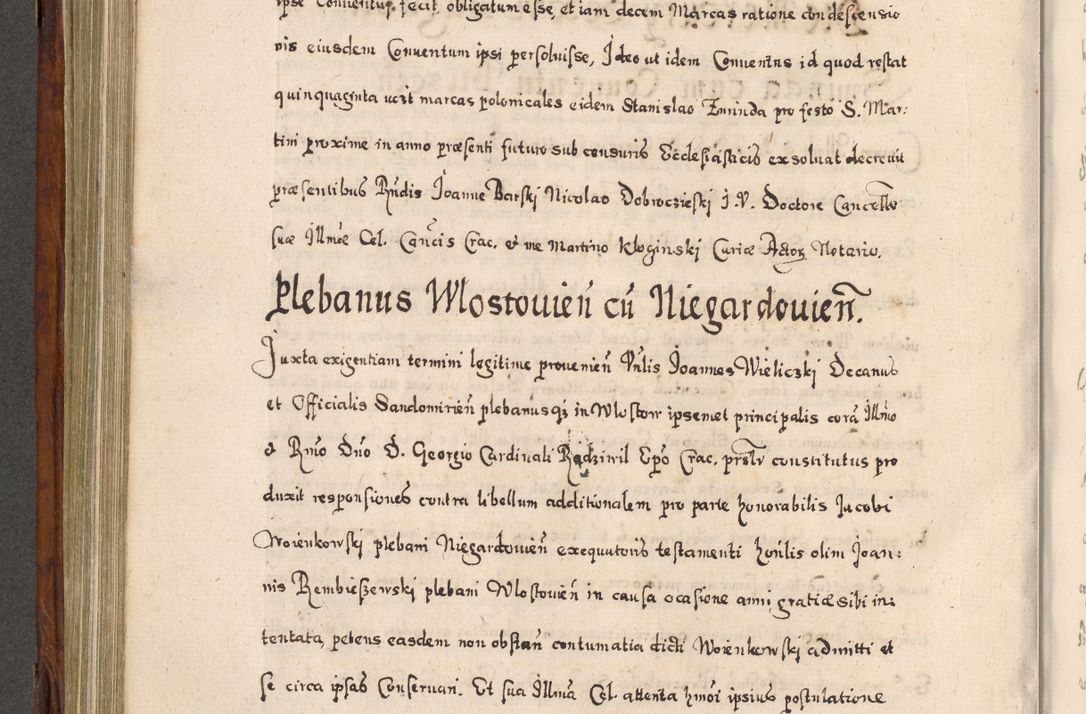 ipse Conventus fecit, obligatum esse, etiam decem Marcas ratione condescensio
nis eiusdem Conventum ipsi persoluisse, Ideo ut idem Conventus id quod restat
quinquaginta marcas polonicales eidem Stanislao Zminda pro festo S. Mar:
tini proxime in anno præsenti futuro sub censuris Ecclesiasticis exsoluat decrevit
præsentibus Rñdis Joanne Barski Nicolao Dobroczieski J.V. Doctore Cancello
suæ Illmæ Cel. Cancis Crac. et me Martino Kłoginski Curiæ Actor Notario.
Plebanus Wlostouieñ cũ Niegardouieñ.
Juxta exigentiam termini legitime provenieñ Vnlis Joannes Wieliczki Decanus
et Officialis Sandomirieñ plebanusq; in Wlostow ipsemet principalis corã Illmo
et Rmo Dño D. Georgio Cardinali Radziwil Epo Crac. prstlr constitutus pro
duxit responsiones contra libellum additionalem pro parte honorabilis Jacobi
Woienkowski plebani Niegardouieñ exequutoris testamenti honlis olim Joan:
nis Rembieszewski plebani Wlostouieñ in causa ocasione anni gratiæ sibi in:
tentata, petens easdem non obstañ contumatia dicti Woienkowski admitti et
se circa ipsas Conseruari. Et sua Illma Cel. attenta hmoi ipsius postulatione